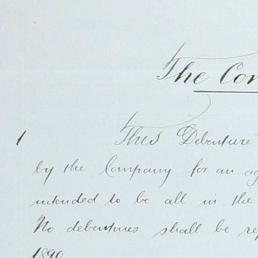 The Con
1 This Debenture
by the Company for an ag
intended to be all in the
No debentures shall be rep
1890